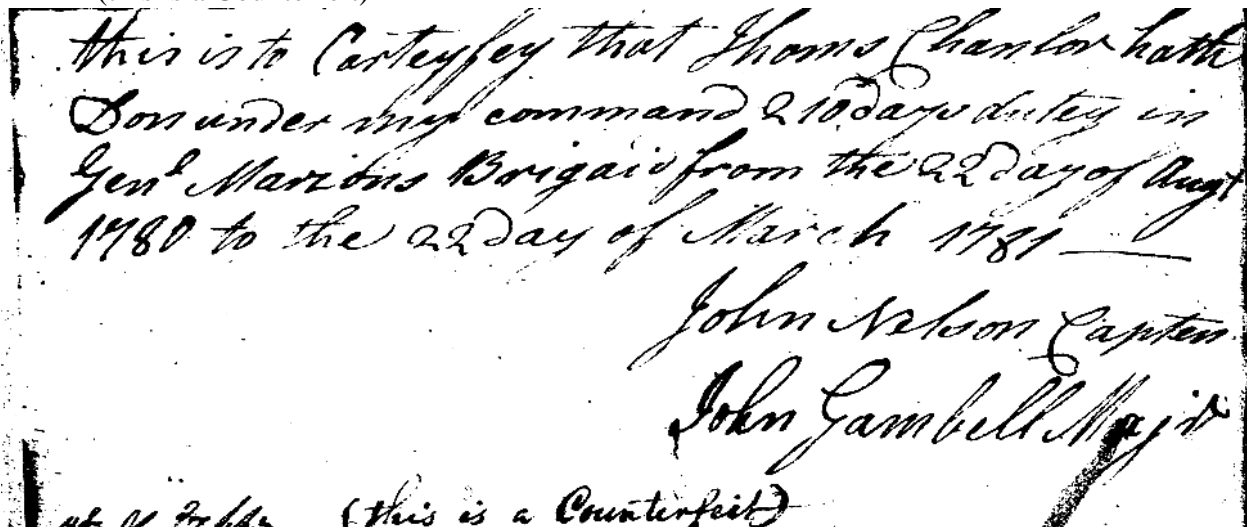 this is to Carteyfey that Thoms Chanlor hath
Don under my command 210 days dutey in
Genl Marions Brigaid from the 22 day of Augt
1780 to the 22 day of March 1781
John Nelson Capten
John Gambell Majr
(this is a Counterfeit)